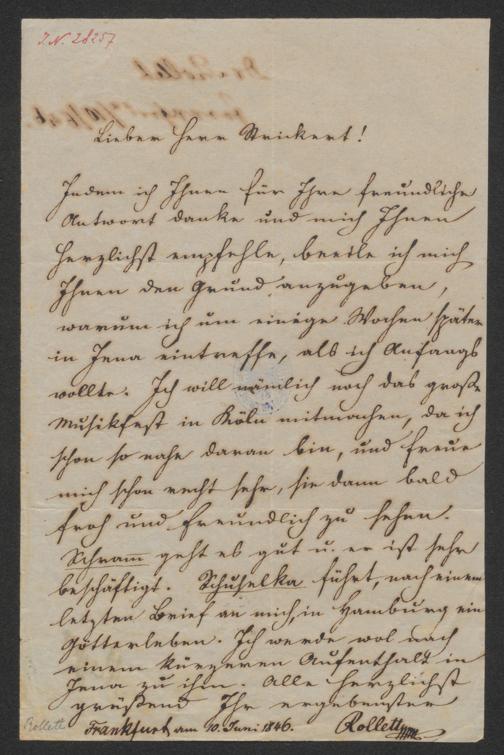 I.N. 28257
Lieber Herr Strickert!
Indem ich Ihnen für Ihre freundliche
Antwort danke und mich Ihnen
herzlichst empfehle, beeile ich mich
Ihnen den Grund anzugeben,
warum ich um einige Wochen später
in Jena eintreffe, als ich Anfangs
wollte. Ich will nämlich noch das große
Musikfest in Köln mitmachen, da ich
schon so nahe daran bin, und freue
mich schon recht sehr, sie dann bald
froh und freundlich zu sehen.
Schramm geht es gut u. er ist sehr
beschäftigt. Schuselka führt, nach einem
letzten Brief an mich, in Hamburg ein
Götterleben. Ich werde wol nach
einem kürzeren Aufenthalt in
Jena zu ihm. Alle herzlichst
grüßend Ihr ergebenster
Frankfurt am 10. Juni 1846. Rollett
Rollett